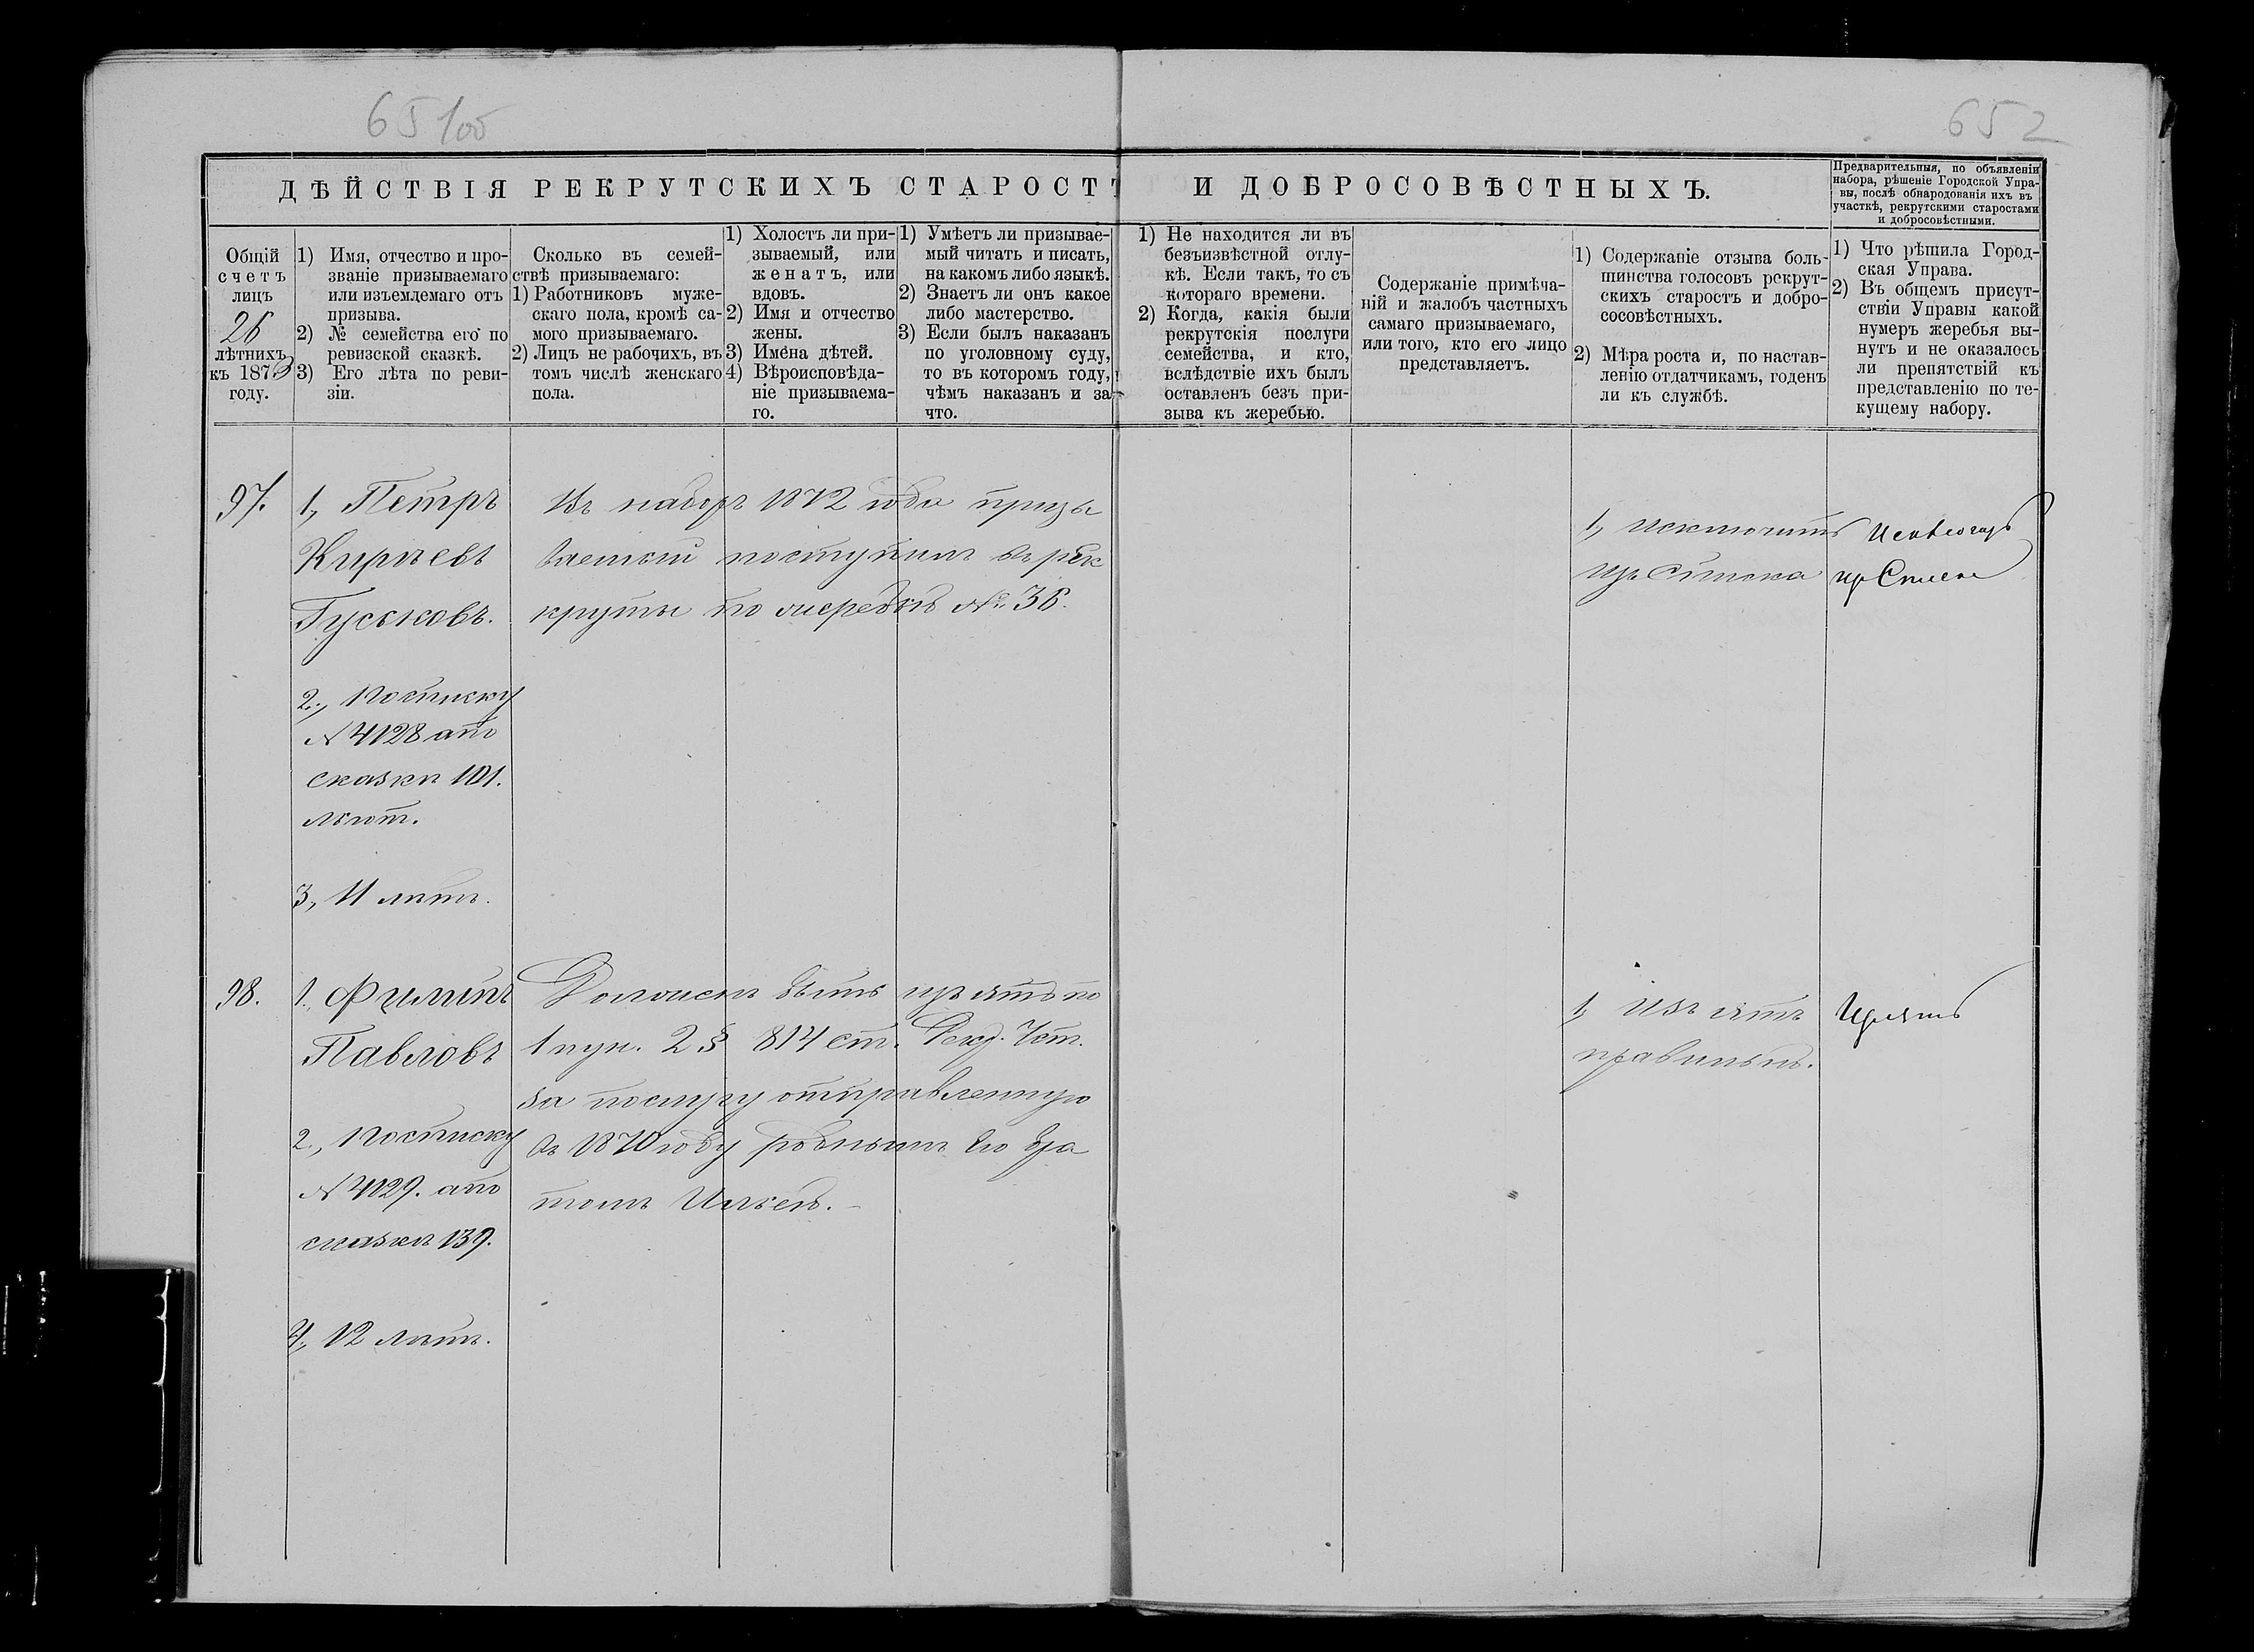 651об
652
ДѢЙСТВІЯ РЕКРУТСКИХЪ СТАРОСТЪ И ДОБРОСОВѢСТНЫХЪ.
Предварительныя, по объявленіи
набора, рѣшеніе Городской Упра-
вы, послѣ обнародованія ихъ въ
участкѣ, рекрутскими старостами
и добросовѣстными.
Общій
счетъ
лицъ
26
лѣтнихъ
къ 1873
году.
1) Имя, отчество и про-
званіе призываемаго
или изъемлемаго отъ
призыва.
2) № семейства его по
ревизской сказкѣ.
3) Его лѣта по реви-
зіи.
Сколько въ семей-
ствѣ призываемаго:
1) Работниковъ муже-
скаго пола, кромѣ са-
мого призываемаго.
2) Лицъ не рабочихъ, въ
томъ числѣ женскаго
пола.
1) Холостъ ли при-
зываемый, или
женатъ, или
вдовъ.
2) Имя и отчество
жены.
3) Имена дѣтей.
4) Вѣроисповѣда-
ніе призываема-
го.
1) Умѣетъ ли призывае-
мый читать и писать,
на какомъ либо языкѣ.
2) Знаетъ ли онъ какое
либо мастерство.
3) Если былъ наказанъ
по уголовному суду,
то въ которомъ году,
чѣмъ наказанъ и за
что.
1) Не находится ли въ
безъизвѣстной отлу-
кѣ. Если такъ, то съ
котораго времени.
2) Когда, какія были
рекрутскія послуги
семейства, и кто,
вслѣдствіе ихъ былъ
оставленъ безъ при-
зыва къ жеребью.
Содержаніе примѣча-
ній и жалобъ частныхъ
самаго призываемаго,
или того, кто его лицо
представляетъ.
1) Содержаніе отзыва боль-
шинства голосовъ рекрут-
скихъ старостъ и добро-
сосовѣстныхъ.
2) Мѣра роста и, по настав-
ленію отдатчикамъ, годенъ
ли къ службѣ.
1) Что рѣшила Город-
ская Управа.
2) Въ общемъ присут-
ствіи Управы какой
нумеръ жеребья вы-
нутъ и не оказалось
ли препятствій къ
представленію по те-
кущему набору.
97.
1, Петръ
Кирѣевъ
Гуськовъ.
2., По списку
№ 4128 а по
сказкѣ 101.
лит.
3, 11 лѣтъ.
Въ наборъ 1872 года призы
ваемый поступилъ въ рек
круты по очередкѣ №. 36.
1, Исключить
изъ Списка
Исключить
изъ Списка
98.
1. Филипъ
Павловъ
2., По списку
№ 4129. а по
сказкѣ 139.
4, 12 лѣтъ.
Долженъ быть изъятъ по
1 пун. 2 § 814 ст. Рекр. Уст.
за послугу отправленную
въ 1870 году роднымъ его бра
томъ
1, Изъять
правильнѣ.
Изъять